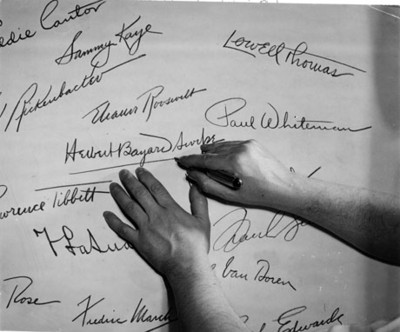 Eddie Cantor
Sammy Kaye
Lowell Thomas
Rickenbacker
Eleanor Roosevelt
Paul Whiteman
Herbert Bayard Swope
Lawrence Tibbett
Van Doren
Rose
Fredric March
Edwards